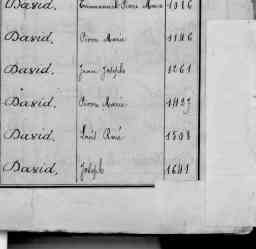 David. Emmanuel Pierre Marie 1186
David. Pierre Marie 1186
David. Jean Joseph 1261
David. Pierre Marie 1427
David. Louis René 1508
David. Joseph 1641